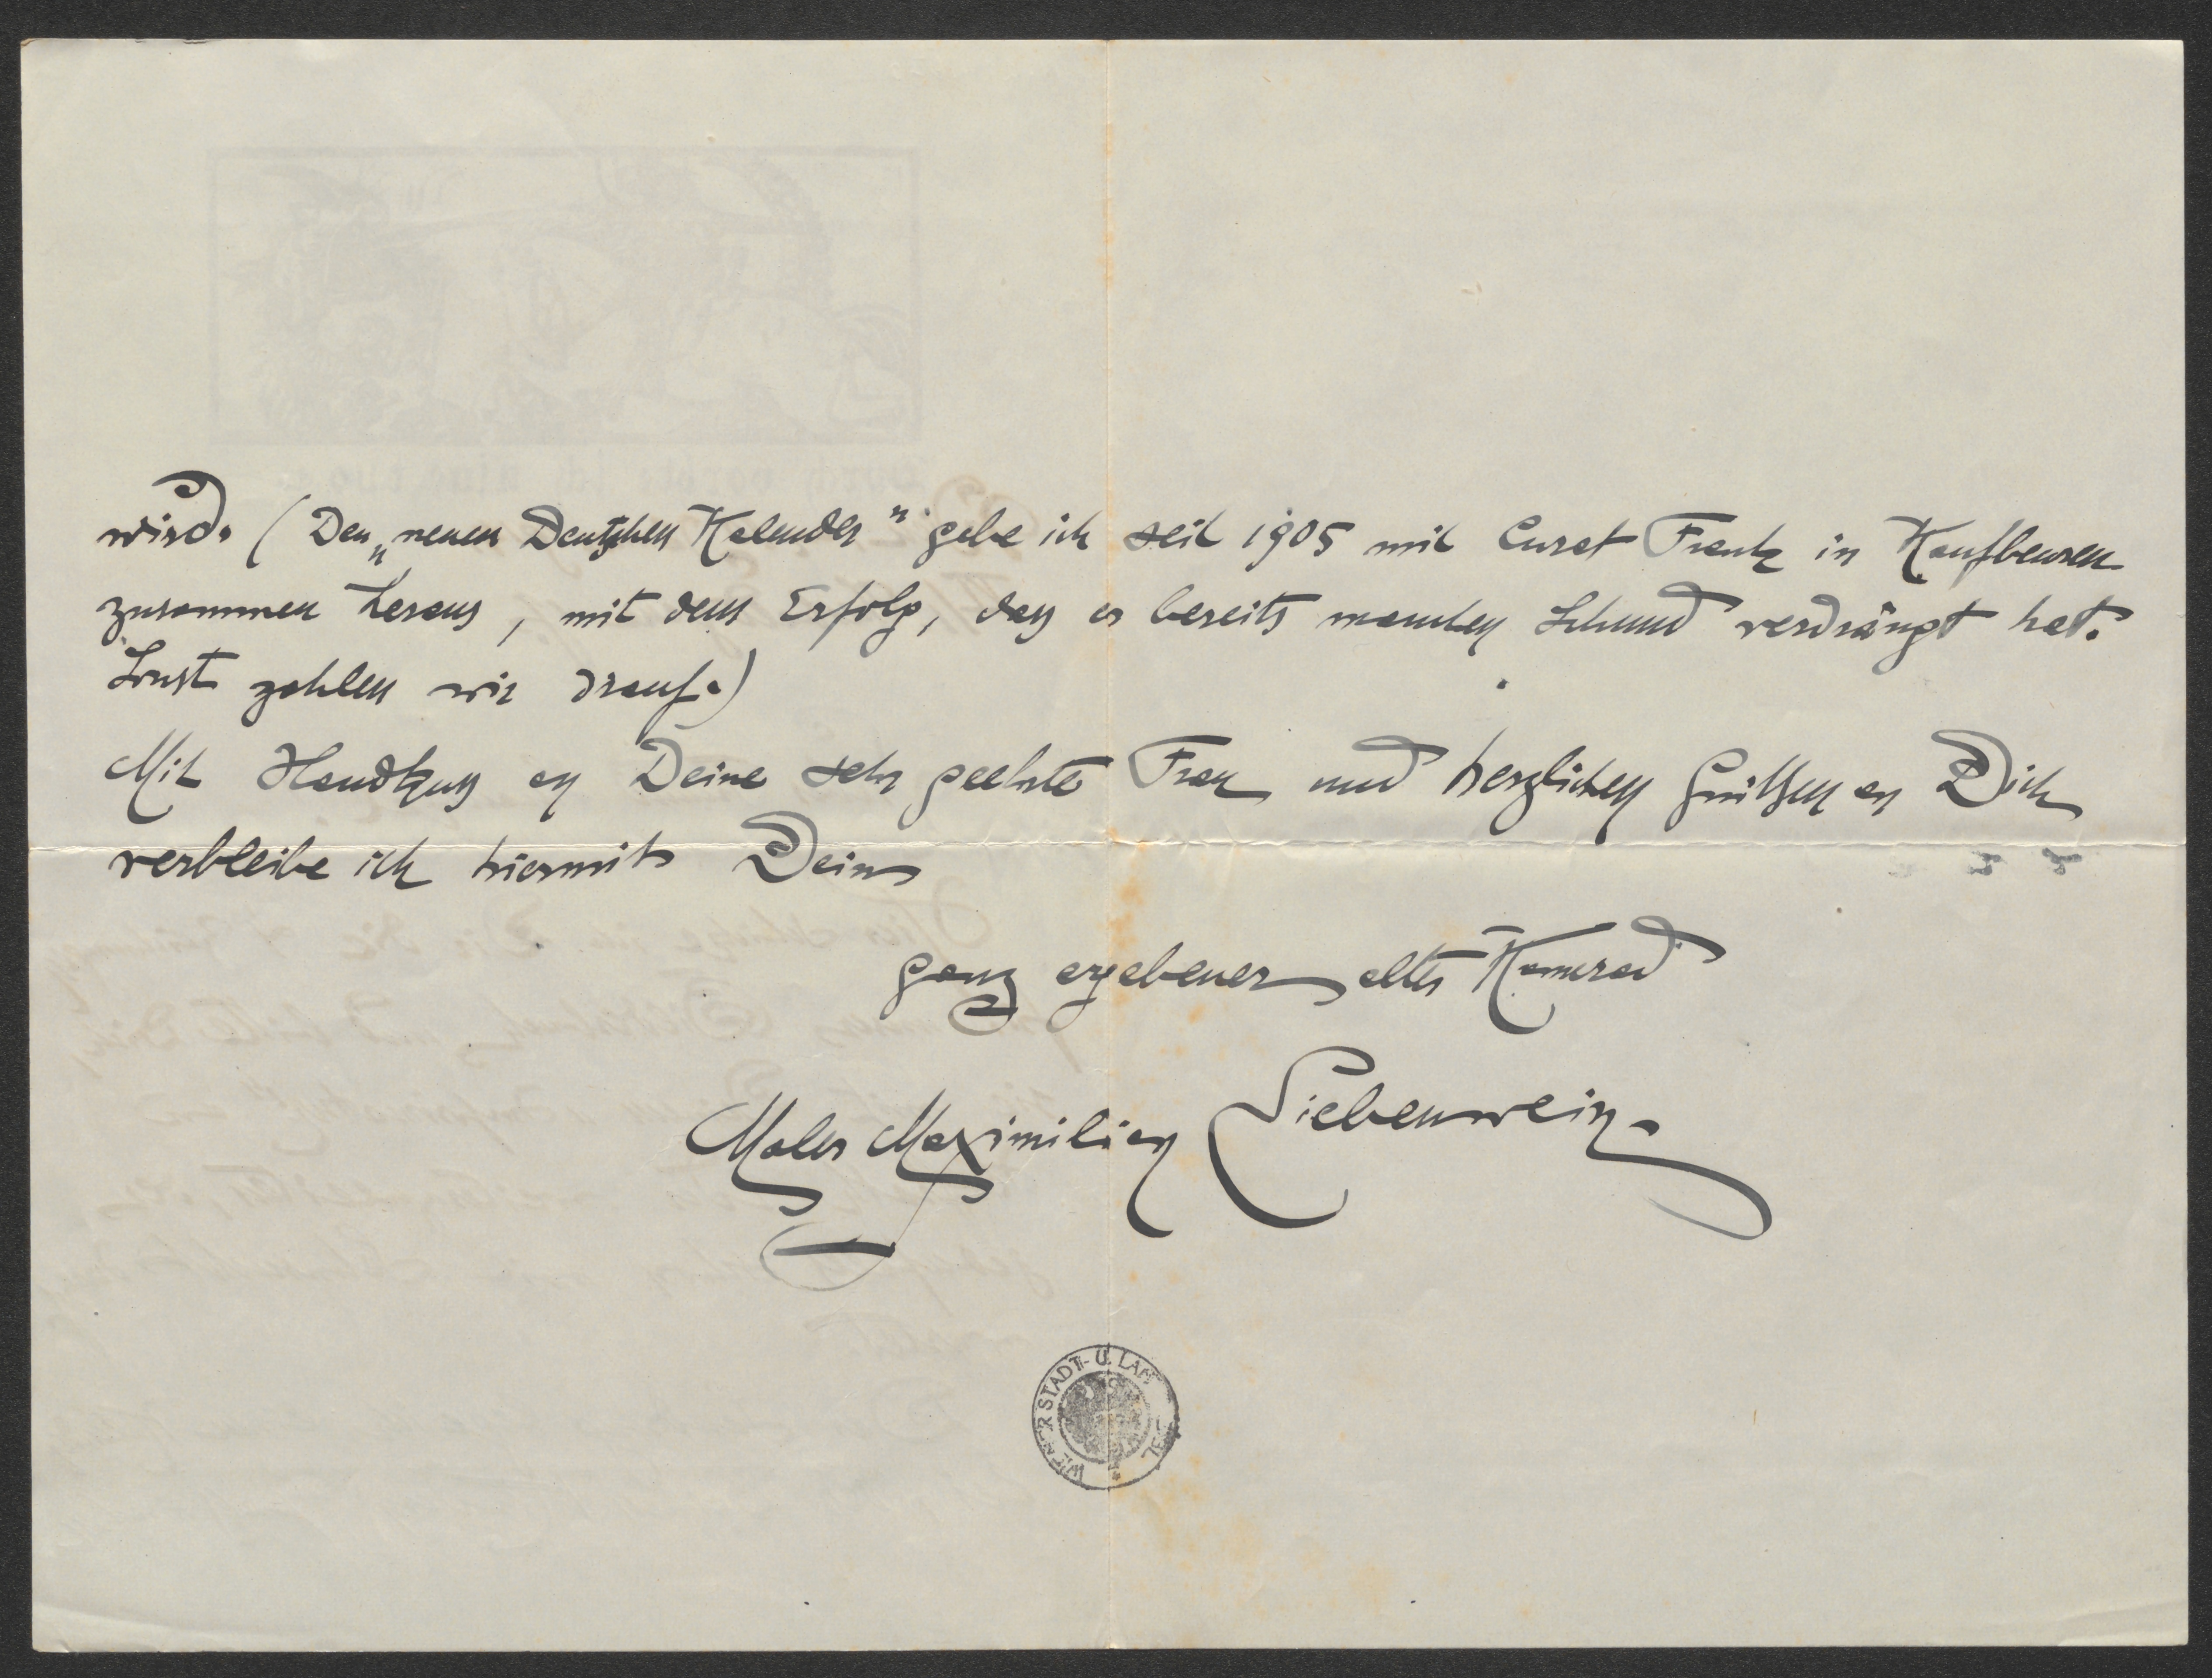 wird. (Den „neuen Deutschen Kalender" gebe ich seit 1905 mit Curat Frank in Kaufbeuren
zusammen heraus, mit dem Erfolg, dass er bereits manchen Schund verdrängt hat.
Sonst zahlen wir drauf.)
Mit Handkuss an Deine sehr geehrte Frau und herzlichen Grüßen an Dich
verbleibe ich hiermit Dein
ganz ergebener alter Kamerad
Maler Maximilian Liebenwein.
WIENER STADT- U. LAN